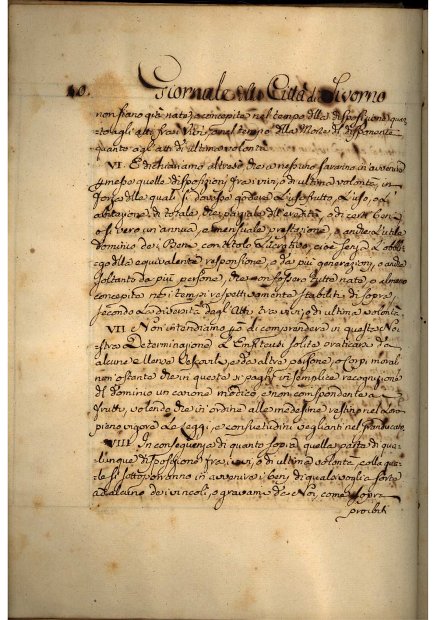 40. Giornale della Città di Livorno
non siano già nate, o concepite nel tempo della disposizione, quan
to agli atti fra i Vivi, o nel tempo della Morte del disponente
quanto agli atti di ultima volontà.
VI. E dichiariamo altresì, che a nessuno saranno in avvenire
permesse quelle disposizioni fra i vivi, o di ultima volontà, in
forza delle quali si dovesse godere l'usufrutto, l'uso, o l'a
bitazione di totale, o parziale dell'eredità, o di certi beni,
o sivvero un'annua, o mensuale prestazione, o anche l'utile
dominio dei Beni con titolo lucrativo, cioè senza l'obbli
go della equivalente responsione, o da più generazioni, o anche
soltanto da più persone, che non fossero tutte nate, o almeno
concepite nei tempi respettivamente stabiliti di sopra
secondo la diversità degli Atti tra i vivi, o di ultima volontà.
VII. e Non intendiamo di comprendere in questa No-
stra Determinazione l'Enfiteusi solite praticarsi da
alcune Chiese, Vescovi, e da altre persone, o Corpi morali
non ostante che in queste si paghi in semplice recognizione
del dominio un canone modico e non corrispondente a
frutti, volendo che in ordine alle medesime restino nel loro
pieno vigore le Leggi, e consuetudini veglianti nel Granducato.
VIII. In conseguenza di quanto sopra quella parte di qua
lunque disposizione fra i vivi, o di ultima volontà colla qua
le si sottoporranno in avvenire i beni di qualsivoglia sorte
ad alcuno dei vincoli, o gravami da Noi, come sopra
proibiti